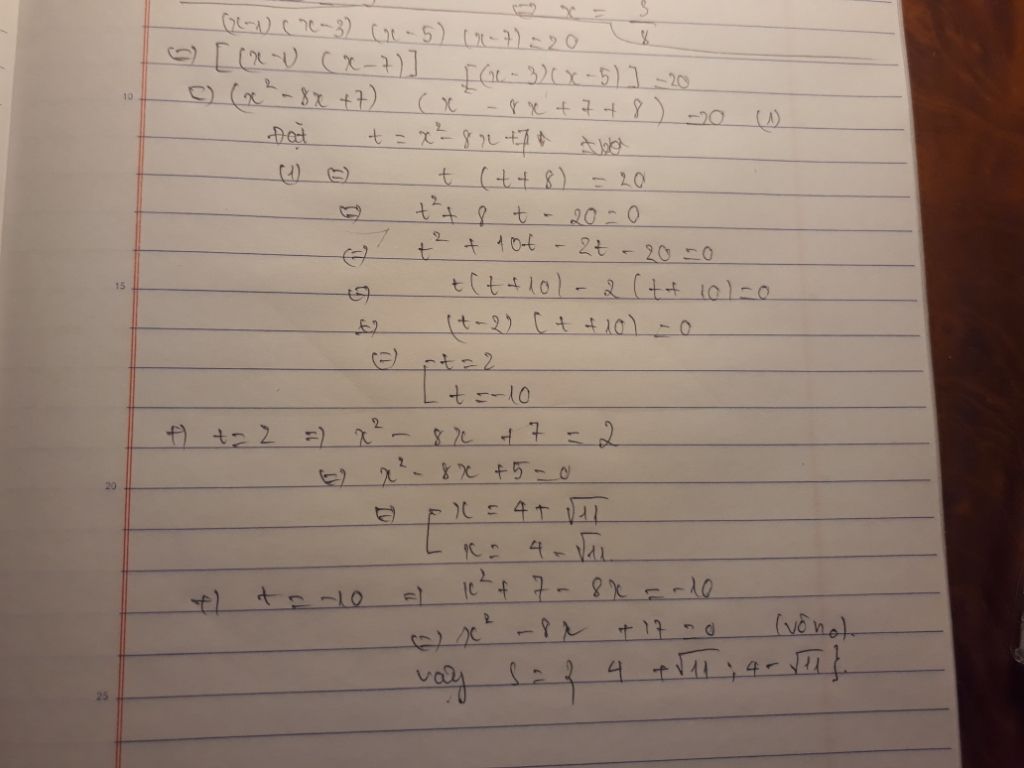 ⇔ x = 3/8
(x-1) (x-3) (x-5) (x-7) = 20
⇔ [(x-1) (x-7)] [(x-3)(x-5)] = 20
⇔ (x² - 8x + 7) (x² - 8x + 7 + 8) = 20 (1)
Đặt t = x² - 8x + 7
(1) ⇔ t (t + 8) = 20
⇔ t² + 8 t - 20 = 0
⇔ t² + 10t - 2t - 20 = 0
⇔ t(t + 10) - 2 (t + 10) = 0
⇔ (t-2) (t + 10) = 0
⇔ [ t = 2
t = -10
+) t = 2 ⇒ x² - 8x + 7 = 2
⇔ x² - 8x + 5 = 0
⇔ [ x = 4 + √11
x = 4 - √11
+) t = -10 ⇒ x² + 7 - 8x = -10
⇔ x² - 8x + 17 = 0 (vô no).
vậy S = { 4 + √11 ; 4 - √11 }.
10
15
20
25